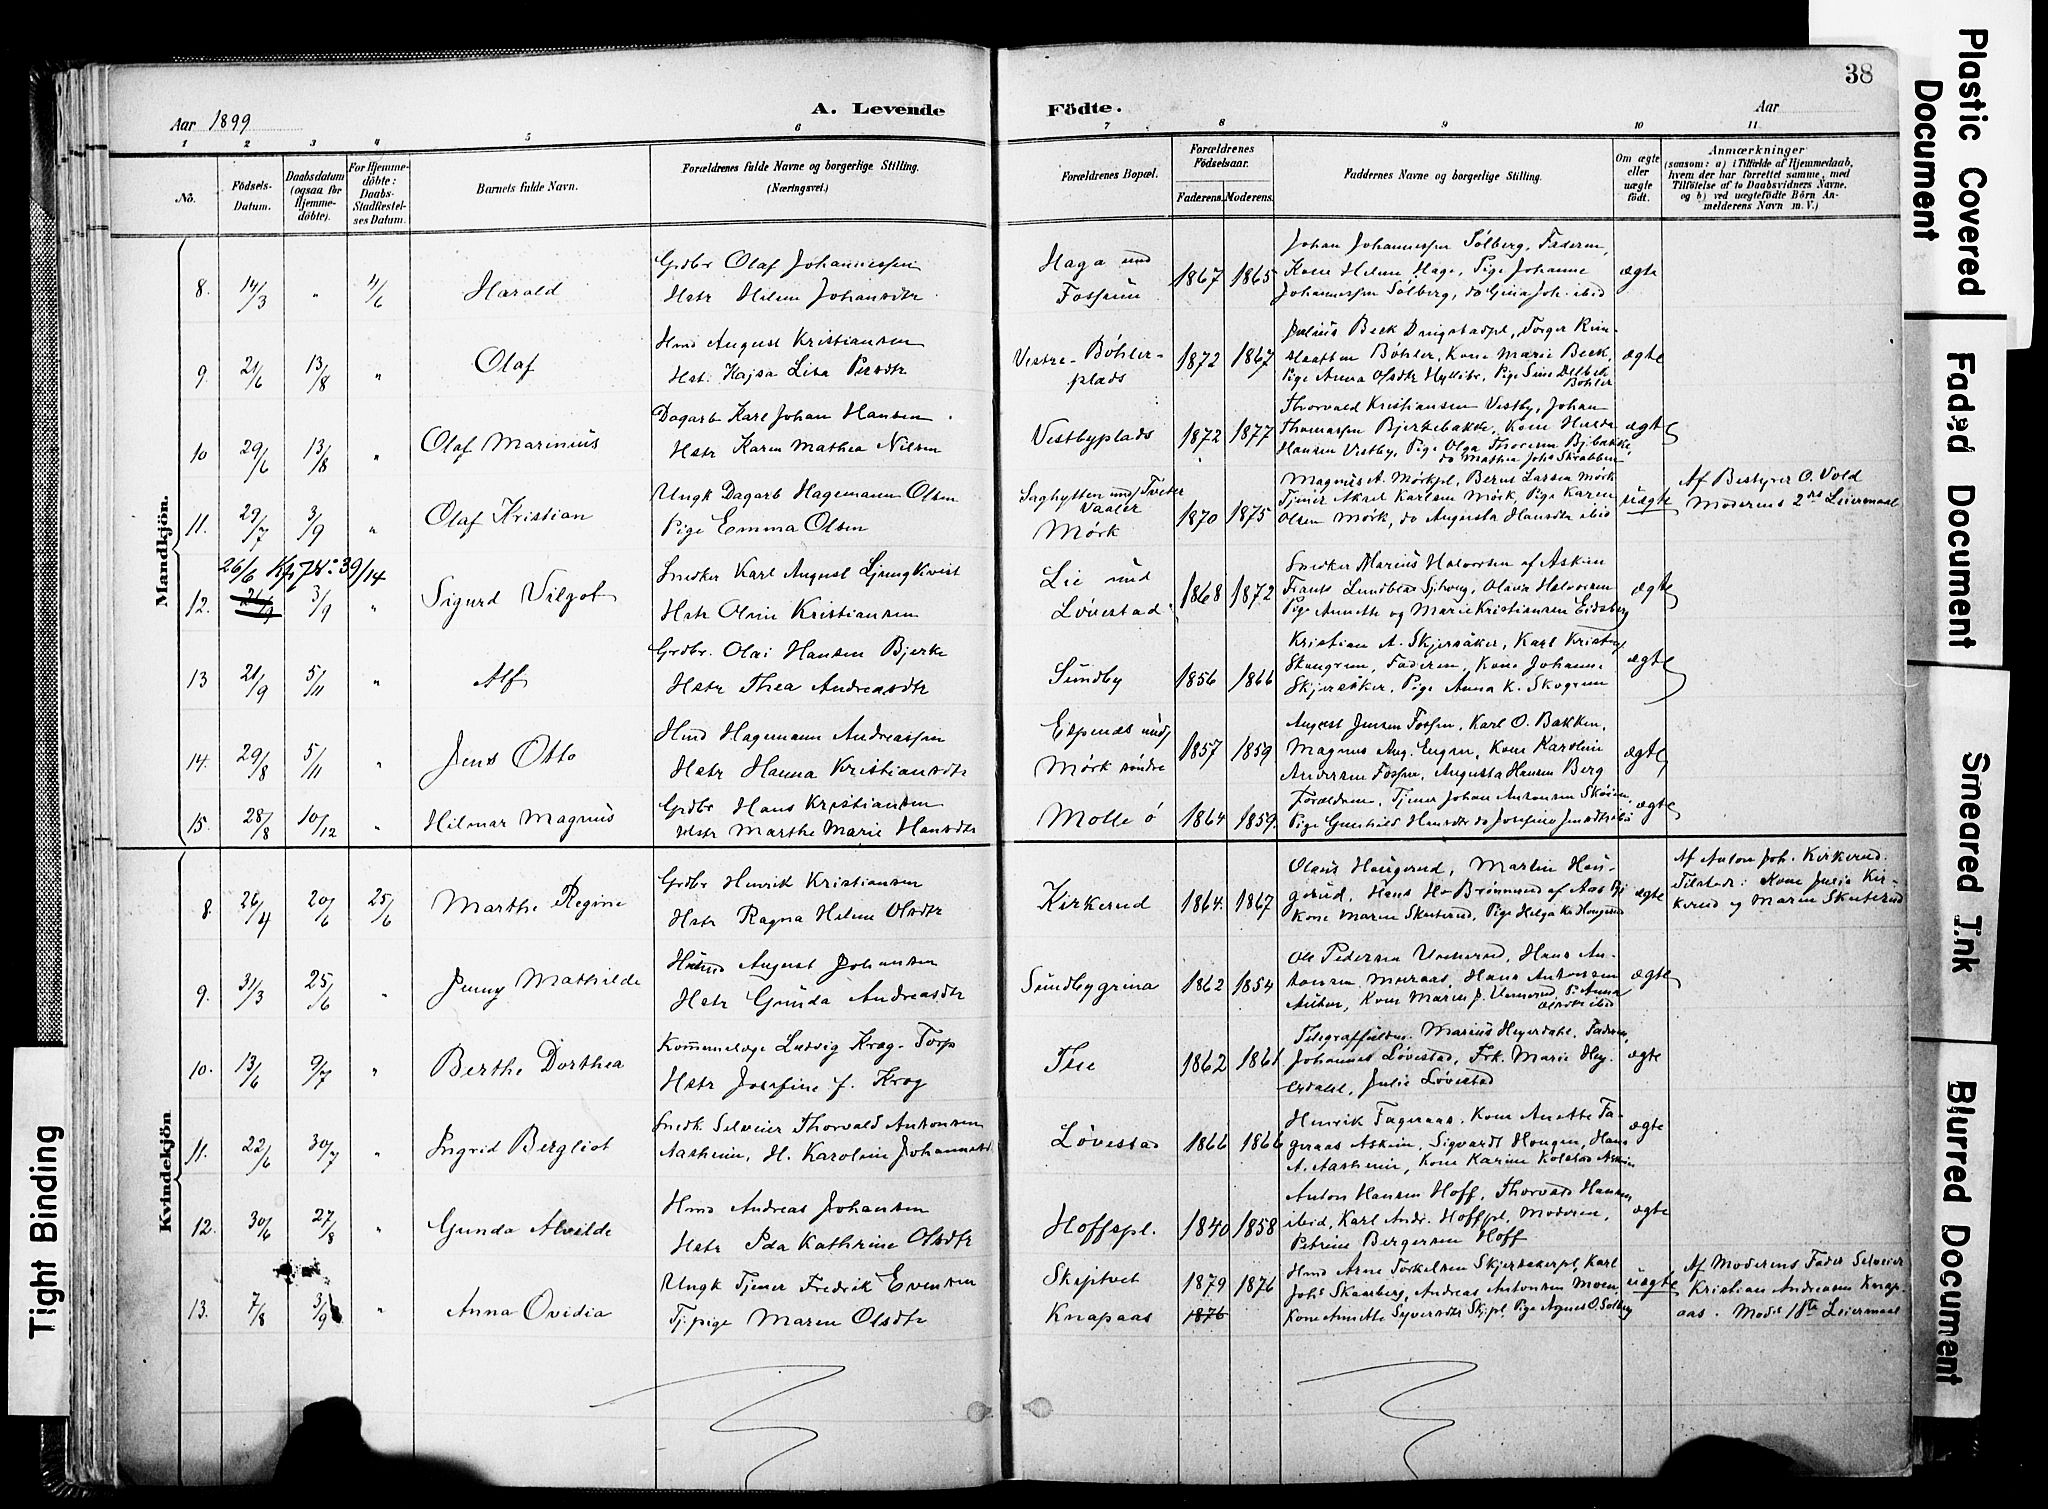 38
Aar 1899
A. Levende Födte.
Aar
1 2 3 4 5 6 7 8 9 10 11
No.
Födsels-Datum.
Daabsdatum (ogsaa för Hjemme-döbte).
For Hjemme-döbte: Daabs-Stadfæstelses Datum.
Barnets fulde Navn.
Forældrenes fulde Navne og borgerlige Stilling. (Næringsvei.)
Forældrenes Bopæl.
Forældrenes Födselsaar.
Faderens. Moderens.
Faddernes Navne og borgerlige Stilling.
Om ægte eller uægte født.
Anmærkninger
(saasom: a) i Tilfælde af Hjemmedaab,
hvem der har forrettet samme, med
Tilföielse af to Daabsvidners Navne,
og b) ved uægtefödte Börn An-
melderens Navn m. V.)
Mandkjön.
8. 14/3 " 4/6 Harald
Grdbr Olaf Johannessen
Hstr Helene Johansdtr
Haga und Fossum
1867 1865
Johan Johannessen Sølberg, Faderen,
Kone Helene Haga, Pige Johanne
Johannessen Sølberg, do Gina Joh. ibid
ægte
9. 21/6 13/8 " Olaf
Hmd August Kristiansen
Hst. Kajsa Lisa Persdtr
Vestre-Bøhler-plads
1872 1867
Julius Beck
Bøhler, Kone Marie Beck,
Pige Anna Olsdtr
Bøhler
ægte
10 29/6 13/8 " Olaf Marinius
Dagarb Karl Johan Hansen
Hstr Karen Mathea Nilsen
Vestbyplads
1872 1877
Thorvald Kristiansen Vestby, Johan
Thomassen Bjerkebakke, Kone Hulda
Hansen Vestby, Pige Olga
ægte
11. 29/7 3/9 " Olaf Kristian
Ungk Dagarb Hagemann Olsen
Pige Emma Olsen
Saghytten und/Tveter Vaaler
Mørk
1870 1875
Magnus A. Mørkpl, Bernt Larsen Mørk
Tjener Akael Karlsen Mørk, Pige Karen
Olsen Mørk, do Augusta Hansdtr ibid
uægte
Af Bestyrer O. Vold
Moderens 2det Leiermaal
26/6 Kfr JN: 39/14
12. 21/9 3/9 " Sigurd Vilgot
Snedker Karl August Ljungkvist
Hstr Oline Kristiansen
Lie und Løvestad
1868 1872
Snedker Marius Halvorsen af Askim
Frants Lundblad, Olava Halvorsen
Pige Annette og Marie Kristiansen Eidsberg
ægte
13 21/9 5/11 " Alf
Grdbr. Olai Hansen Bjerke
Hstr Thea Andreasdtr
Sundby
1856 1866
Kristian A. Skjersåker, Karl
Faderen, Kone Johanne
Skjersåker, Pige Anna K. Skogrun
ægte
14. 29/8 5/11 " Jens Otto
Hmd Hagemann Andreassen
Hstr Hanna Kristiansdtr
Espenæs und/
Mørk søndre
1857 1859
August Jensen Fossen, Karl O. Bakken,
Magnus Aug. Engen, Kone Karoline
Andersen Fossen, Augusta Hansen Berg
ægte
15. 28/8 10/12 " Hilmar Magnus
Grdbr Hans Kristiansen
Hstr Marthe Marie Hansdtr
Molle ø
1864 1859.
Forældrene, Tjener Johan Antonsen Skøien,
Pige Gunhild Hansdtr do Josefine Jensdtr ibd
ægte
Kvindekjön
8. 26/4 20/6 25/6 Marthe Regine
Grdbr Henrik Kristiansen
Hstr Ragna Helene Olsdtr
Kirkerud
1864. 1867
Olaus Haugerud, Martin Hau-
gerud, Hans H. Brønnerud af Aas
Kone Maren Skuterud, Pige Helga K. Haugerud
ægte
Af Anton Joh. Kirkerud.
Tilstede: Kone Julie Kir-
kerud og Maren Skuterud
9. 31/3 25/6 " Jenny Mathilde
Hmd August Johansen
Hstr Gunda Andreasdtr
Sundbygrina
1862 1854
Ole Pedersen, Hans An-
tonsen, Hans Antonsen
Kone Maren P.
ægte
10. 13/6 9/7 " Berthe Dorthea
Kommunelæge Ludvig Krag-Torp
Hstr Josefine f. Krog
Tue
1862 1861
Marius Heyerdahl, Faderen,
Johannes Løvestad, Frk. Marie Hey-
erdahl, Julie Løvestad
ægte
11. 22/6 30/7 " Ingrid Bergliot
Snedk Selveier Thorvald Antonsen
Aasheim, H. Karoline Johannesd.
Løvestad
1866 1866
Henrik Fageraas, Kone Anette Fa-
geraas Askim, Sigvardt Haugen, Hans
A. Aasheim, Kone Karine Kolstad Askim
ægte
12. 30/6 27/8 " Gunda Alvilde
Hmd Andreas Johansen
Hstr Ida Kathrine Olsdtr
Hoffspl.
1840 1858
Anton Hansen Hoff, Thorvald Hansen
ibid, Karl Andr. Hoffpl, Moderen,
Petrine Bergersen Hoff
ægte
13. 7/8 3/9 " Anna Ovidia
Ungk Tjener Fredrik Evensen
Tj.pige Maren Olsdtr
Skiptvet
Knapaas
1879 1876
1876
Hmd Arne Torkelsen Skjersakerpl, Karl
Johs Skaarberg, Andreas Antonsen Moen,
Kone Annette Syversdtr Skjpl, Pige Agnes O. Solberg
uægte
Af Moderens Fader Selveier
Kristian Andreasen Knap-
aas. Mods 1ste Leiermaal
Plastic Covered Document
Faded Document
Smeared Ink
Blurred Document
Tight Binding